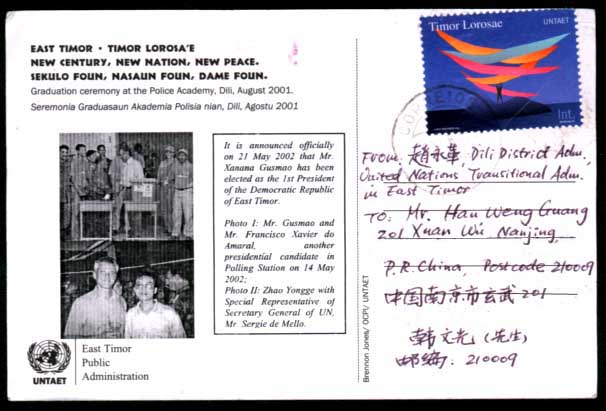 EAST TIMOR • TIMOR LOROSA'E
NEW CENTURY, NEW NATION, NEW PEACE.
SEKULO FOUN, NASAUN FOUN, DAME FOUN.
Graduation ceremony at the Police Academy, Dili, August 2001.
Seremonia Graduasaun Akademia Polisia nian, Dili, Agostu 2001
It is announced officially
on 21 May 2002 that Mr.
Xanana Gusmao has been
elected as the 1st President
of the Democratic Republic
of East Timor.
Photo I: Mr. Gusmao and
Mr. Francisco Xavier do
Amaral, another
presidential candidate in
Polling Station on 14 May
2002;
Photo II: Zhao Yongge with
Special Representative of
Secretary General of UN,
Mr. Sergie de Mello.
UNTAET
East Timor
Public
Administration
Brennon Jones/ OCPI/ UNTAET
Timor Lorosae
UNTAET
Int.
CORREIOS
From: 趙永革, Dili District Adm.,
United Nations Transitional Adm.
in East Timor
TO: Mr. Han Weng Guang
201 Xuan Wu Nanjing,
P.R. China, Postcode 210009
中国南京市玄武 201
韩文光 (先生)
邮编: 210009